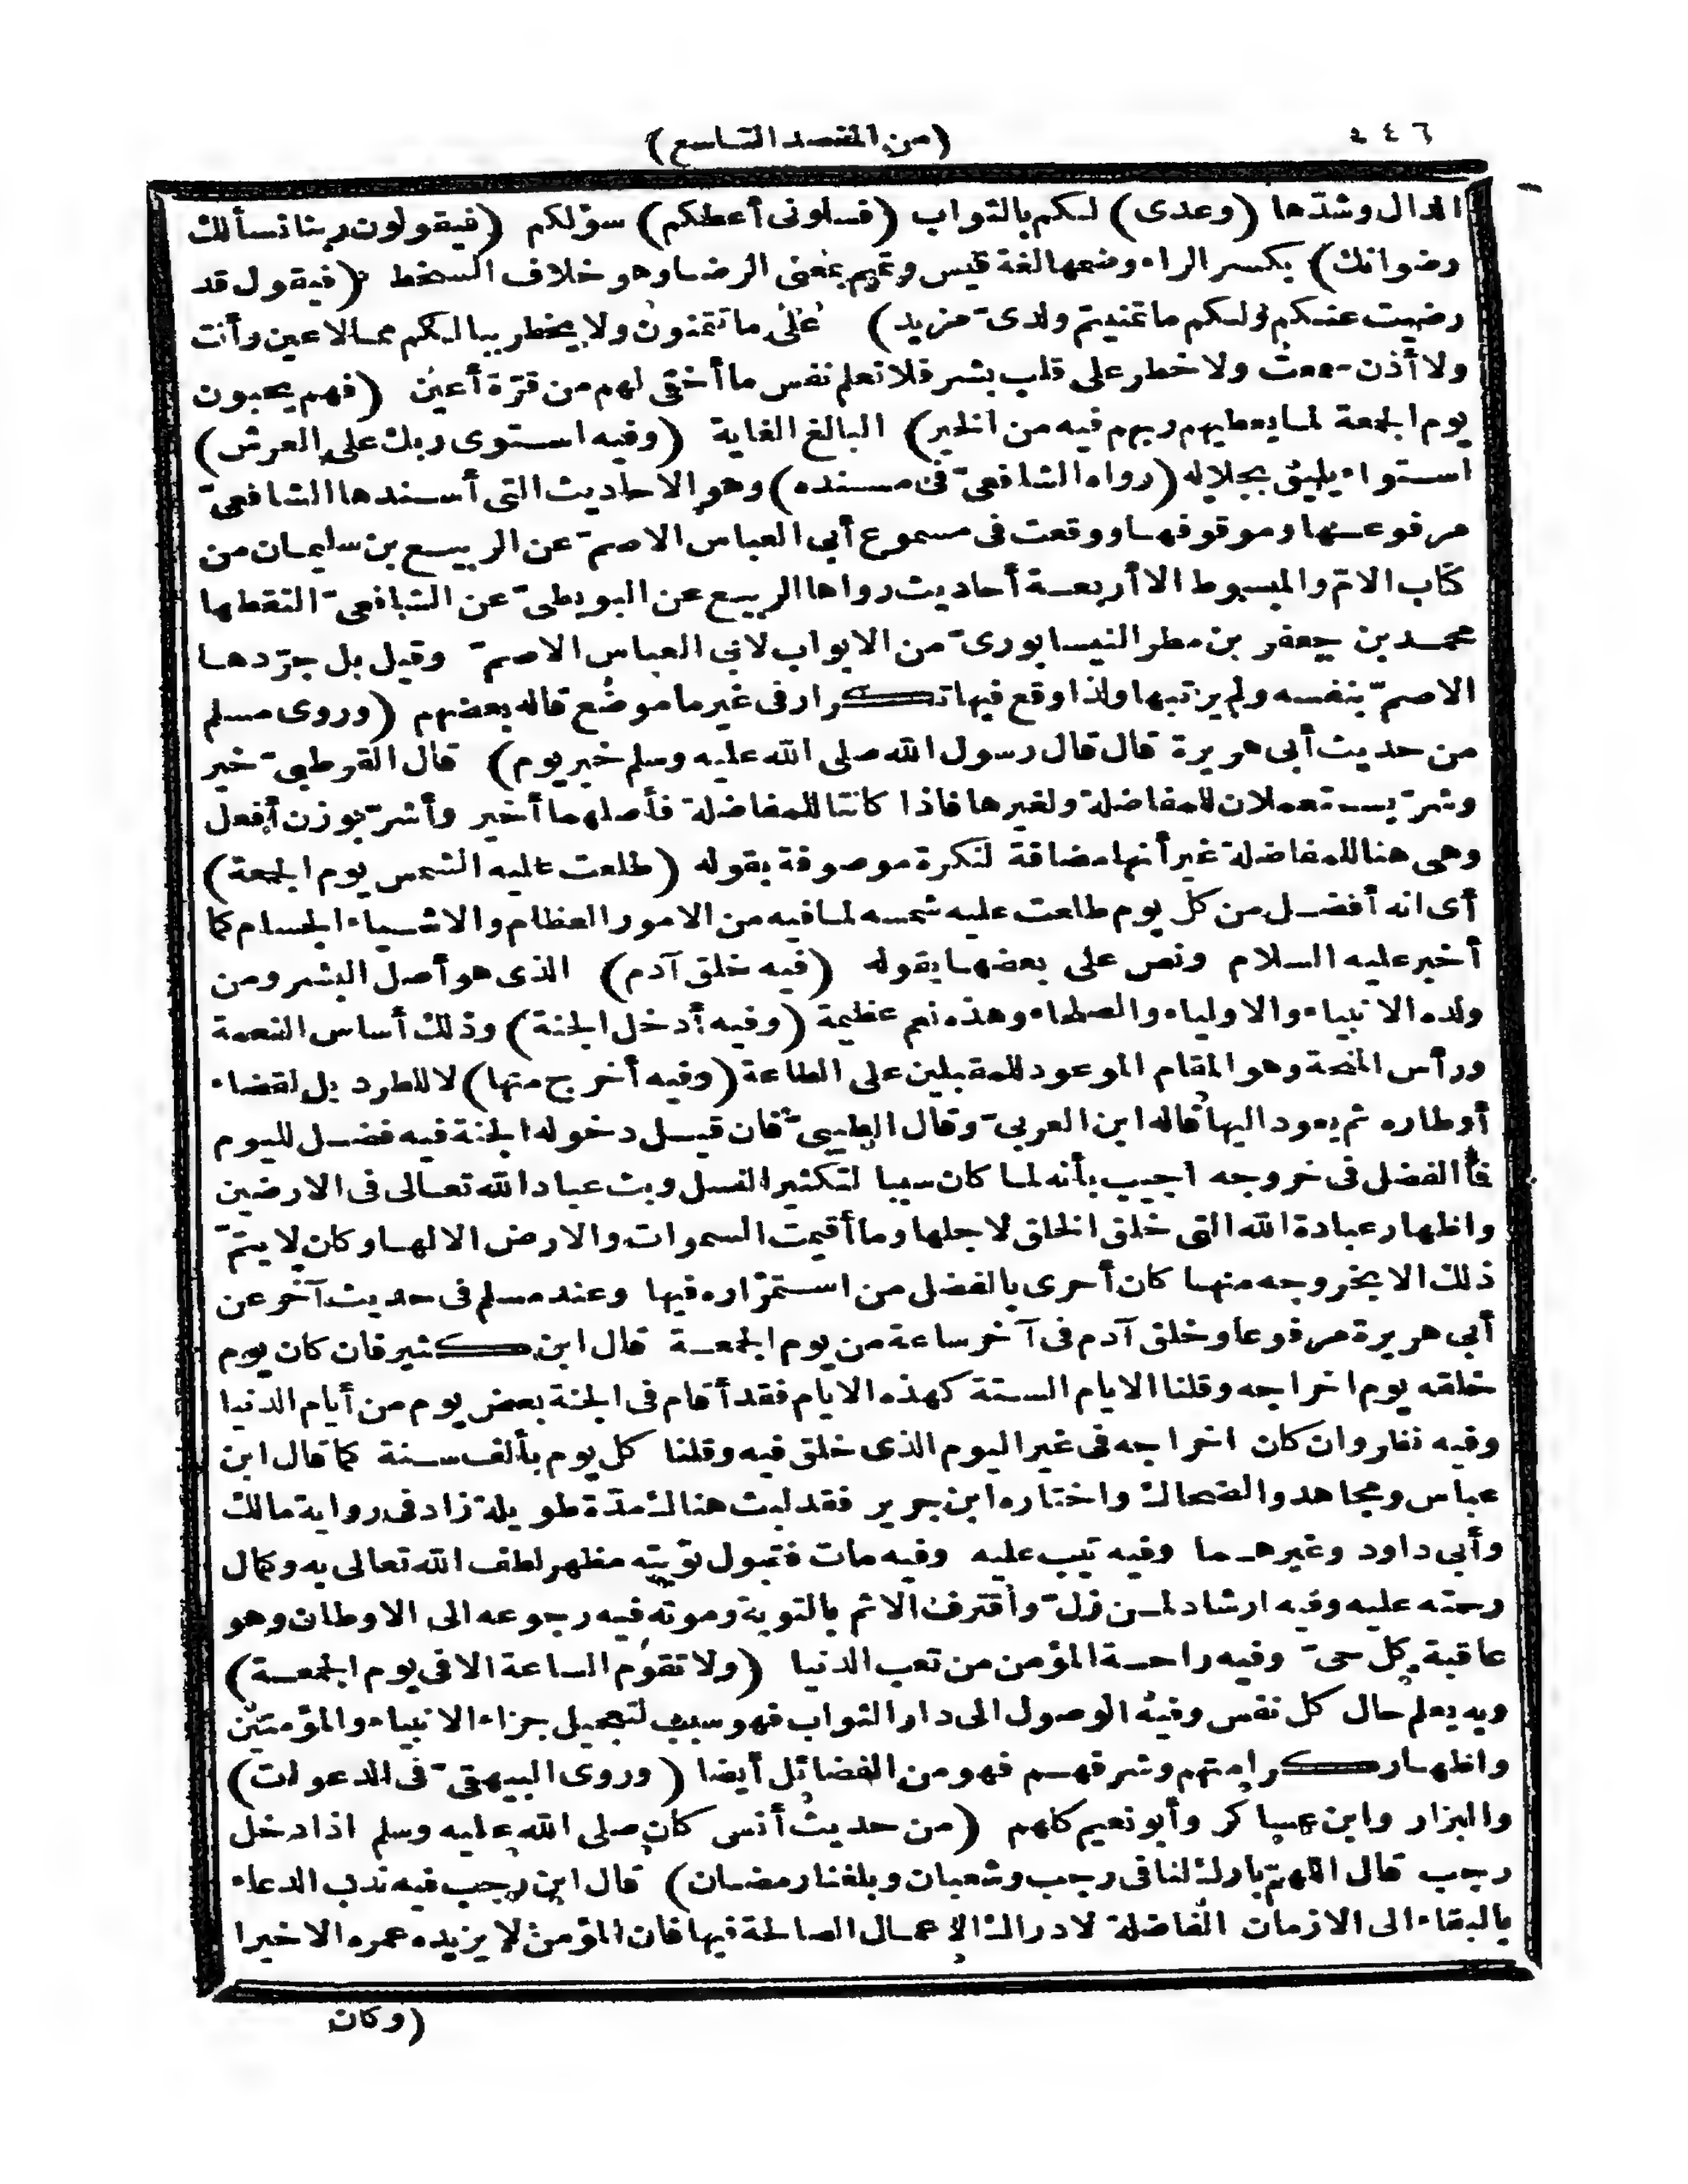 (من المقصد التاسع) ٤٤٦
الدال وشدّها (وعدى) لكم بالثواب (فسلونى أعطكم) سؤلكم (فيقولون ربنا نسألك
رضوانك) بكسر الراء وضمها لغة قيس وتميم بمعنى الرضا وهو خلاف السخط (فيقول قد
رضيت عنكم ولكم ما تمنيتم ولدىّ مزيد) على ما تتمنون ولا يخطر ببالكم مما لا عين رأت
ولا أذن سمعت ولا خطر على قلب بشر فلا تعلم نفس ما أخفى لهم من قرّة أعين (فهم يحبون
يوم الجمعة لما يعطيهم ربهم فيه من الخير) البالغ الغاية (وفيه استوى ربك على العرش)
استواء يليق بجلاله (رواه الشافعىّ فى مسنده) وهو الاحاديث التى أسندها الشافعىّ
مرفوعها وموقوفها ووقعت فى مسموع أبى العباس الاصمّ عن الربيع بن سليمان من
كتاب الامّ والمبسوط الا أربعة أحاديث رواها الربيع عن البويطىّ عن الشافعىّ التقطها
محمد بن جعفر بن مطر النيسابورىّ من الابواب لابى العباس الاصمّ وقيل بل جرّدها
الاصمّ بنفسه ولم يرتبها ولذا وقع فيها تكرار فى غير ما موضع قاله بعضهم (وروى مسلم
من حديث أبى هريرة قال قال رسول الله صلى الله عليه وسلم خير يوم) قال القرطبىّ خير
وشرّ يستعملان للمفاضلة ولغيرها فاذا كانتا للمفاضلة فأصلهما أخير وأشرّ بوزن أفعل
وهى هنا للمفاضلة غير أنها مضافة لنكرة موصوفة بقوله (طلعت عليه الشمس يوم الجمعة)
أى انه أفضل من كل يوم طلعت عليه شمسه لما فيه من الامور العظام والاشياء الجسام كما
أخبر عليه السلام ونص على بعضها بقوله (فيه خلق آدم) الذى هو أصل البشر ومن
ولده الانبياء والاولياء والصلحاء وهذه نعم عظيمة (وفيه أدخل الجنة) وذلك أساس النعمة
ورأس المنحة وهو المقام الموعود للمقبلين على الطاعة (وفيه أخرج منها) لا للطرد بل لقضاء
أوطاره ثم يعود اليها قاله ابن العربىّ وقال الطيبىّ فان قيل دخوله الجنة فيه فضل لليوم
فما الفضل فى خروجه اجيب بأنه لما كان سببا لتكثير النسل وبث عباد الله تعالى فى الارضين
واظهار عبادة الله التى خلق الخلق لاجلها وما أقيمت السموات والارض الا لها وكان لا يتمّ
ذلك الا بخروجه منها كان أحرى بالفضل من استمرّاره فيها وعند مسلم فى حديث آخر عن
أبى هريرة مرفوعا وخلق آدم فى آخر ساعة من يوم الجمعة قال ابن كثير فان كان يوم
خلقه يوم اخراجه وقلنا الايام الستة كهذه الايام فقد أقام فى الجنة بعض يوم من أيام الدنيا
وفيه نظر وان كان اخراجه فى غير اليوم الذى خلق فيه وقلنا كل يوم بألف سنة كما قال ابن
عباس ومجاهد والضحاك واختاره ابن جرير فقد لبث هناك مدّة طويلة زاد فى رواية مالك
وأبى داود وغيرهما وفيه تيب عليه وفيه مات فقبول توبته مظهر لطف الله تعالى به وكمال
رحمته عليه وفيه ارشاد لمن زلّ واقترف الاثم بالتوبة وموته فيه رجوعه الى الاوطان وهو
عاقبة كل حىّ وفيه راحة المؤمن من تعب الدنيا (ولا تقوم الساعة الا فى يوم الجمعة)
وبه يعلم حال كل نفس وفيه الوصول الى دار الثواب فهو سبب لتعجيل جزاء الانبياء والمؤمنين
واظهار كرامتهم وشرفهم فهو من الفضائل أيضا (وروى البيهقىّ فى الدعوات)
والبزار وابن عساكر وأبو نعيم كلهم (من حديث أنس كان صلى الله عليه وسلم اذا دخل
رجب قال اللهمّ بارك لنا فى رجب وشعبان وبلغنا رمضان) قال ابن رجب فيه ندب الدعاء
بالبقاء الى الازمان الفاضلة لادراك الاعمال الصالحة فيها فان المؤمن لا يزيده عمره الا خيرا
(وكان